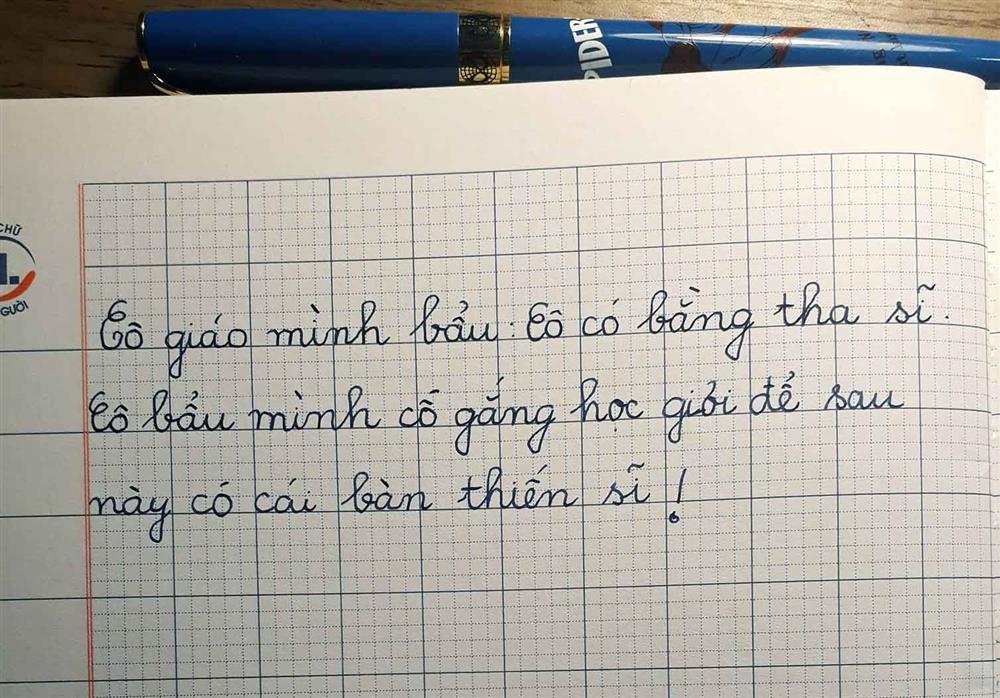 PIDER
CHỮ
GƯỜI
Cô giáo mình bẩu: Cô có bằng tha sĩ.
Cô bẩu mình cố gắng học giỏi để sau
này có cái bàn thiến sĩ!